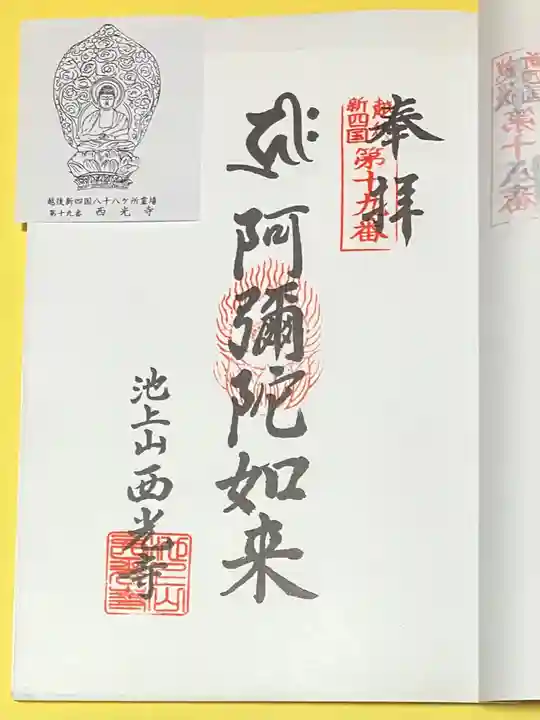 奉拝
越後
新四国
第十九番
𑖮𑖿𑖨𑖱𑖾
阿彌陀如来
池上山西光寺
越後新四国八十八ケ所霊場
第十九番 西光寺
新四国
第十八番